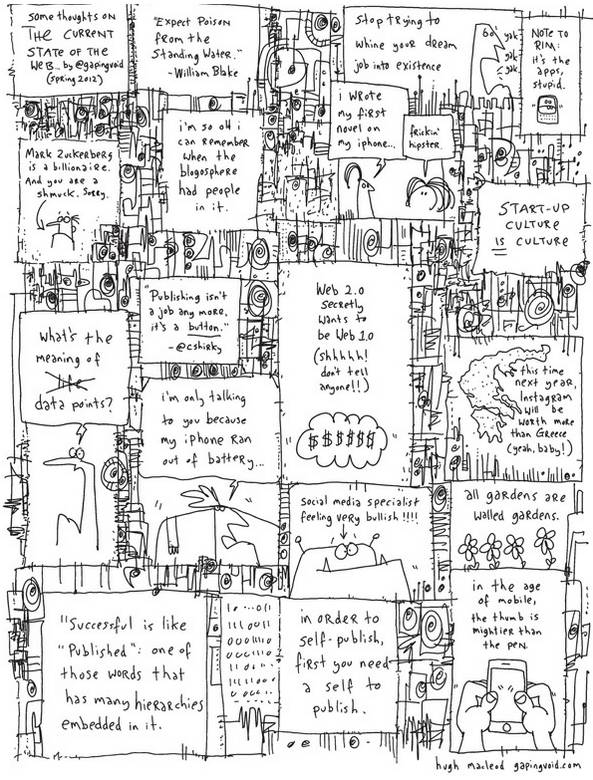 some thoughts on
THE CURRENT
STATE OF THE
WEB... by @gapingvoid
(spring 2012)
"Expect Poison
from the
Standing Water."
- William Blake
Stop trying to
whine your dream
job into existence
Go!
yak
yak
yak
NOTE TO
RIM:
it's the
apps,
stupid.
Mark Zuckerberg
is a billionaire.
And you are a
shmuck. Sorry.
i'm so old i
can remember
when the
blogosphere
had people
in it.
i wrote
my first
novel on
my iphone...
frickin'
hipster.
START-UP
CULTURE
IS CULTURE
What's the
meaning of
life
data points?
"Publishing isn't
a job any more,
it's a button."
- @cshirky
Web 2.0
secretly
wants to
be Web 1.0
(shhhhh!
don't tell
anyone!!)
$$$$$$
this time
next year,
Instagram
will be
worth more
than Greece
(yeah, baby!)
i'm only talking
to you because
my iPhone ran
out of battery...
social media specialist
feeling very bullish !!!!
all gardens are
walled gardens.
"Successful is like
"Published": one of
those words that
has many hierarchies
embedded in it.
in order to
self-publish,
first you need
a self to
publish.
in the age
of mobile,
the thumb is
mightier than
the pen.
hugh macleod gapingvoid.com